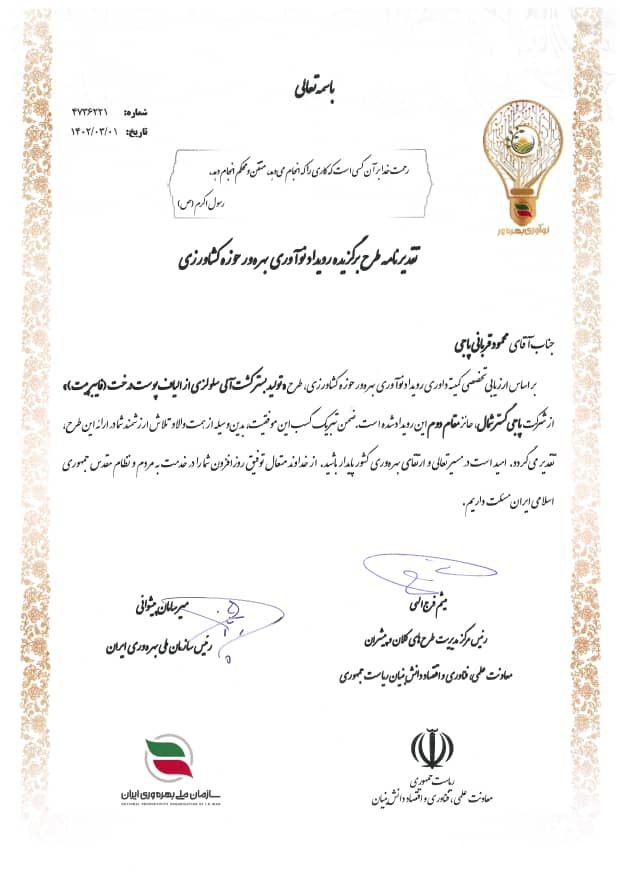 باسمه تعالی
شماره: ۴۷۳۶۲۲۱
تاریخ: ۱۴۰۲/۰۳/۰۱
رحمت خدا بر آن کسی است که کاری را که انجام می‌دهد، متقن و محکم انجام دهد.
رسول اکرم (ص)
نوآوری بهره‌ور
تقدیرنامه طرح برگزیده رویداد نوآوری بهره‌ور حوزه کشاورزی
جناب آقای محمود قربانی پاجی
بر اساس ارزیابی تخصصی کمیته داوری رویداد نوآوری بهره‌ور حوزه کشاورزی، طرح «تولید بستر کشت آلی سلولزی از الیاف پوست درخت (فایبرپیت)»
از شرکت پاجی گستر شمال، حائز مقام دوم این رویداد شده است. ضمن تبریک کسب این موفقیت، بدین وسیله از همت والا و تلاش ارزشمند شما در ارائه این طرح،
تقدیر می گردد. امید است در مسیر تعالی و ارتقای بهره‌وری کشور پایدار باشید. از خداوند متعال توفیق روزافزون شما را در خدمت به مردم و نظام مقدس جمهوری
اسلامی ایران مسئلت داریم.
میثم فرج الهی
رئیس مرکز مدیریت طرح‌های کلان و پیشران
معاونت علمی، فناوری و اقتصاد دانش بنیان ریاست جمهوری
میرسامان پیشوائی
رئیس سازمان ملی بهره‌وری ایران
ریاست جمهوری
معاونت علمی، فناوری و اقتصاد دانش بنیان
سازمان ملی بهره‌وری ایران
NATIONAL PRODUCTIVITY ORGANIZATION OF I.R IRAN